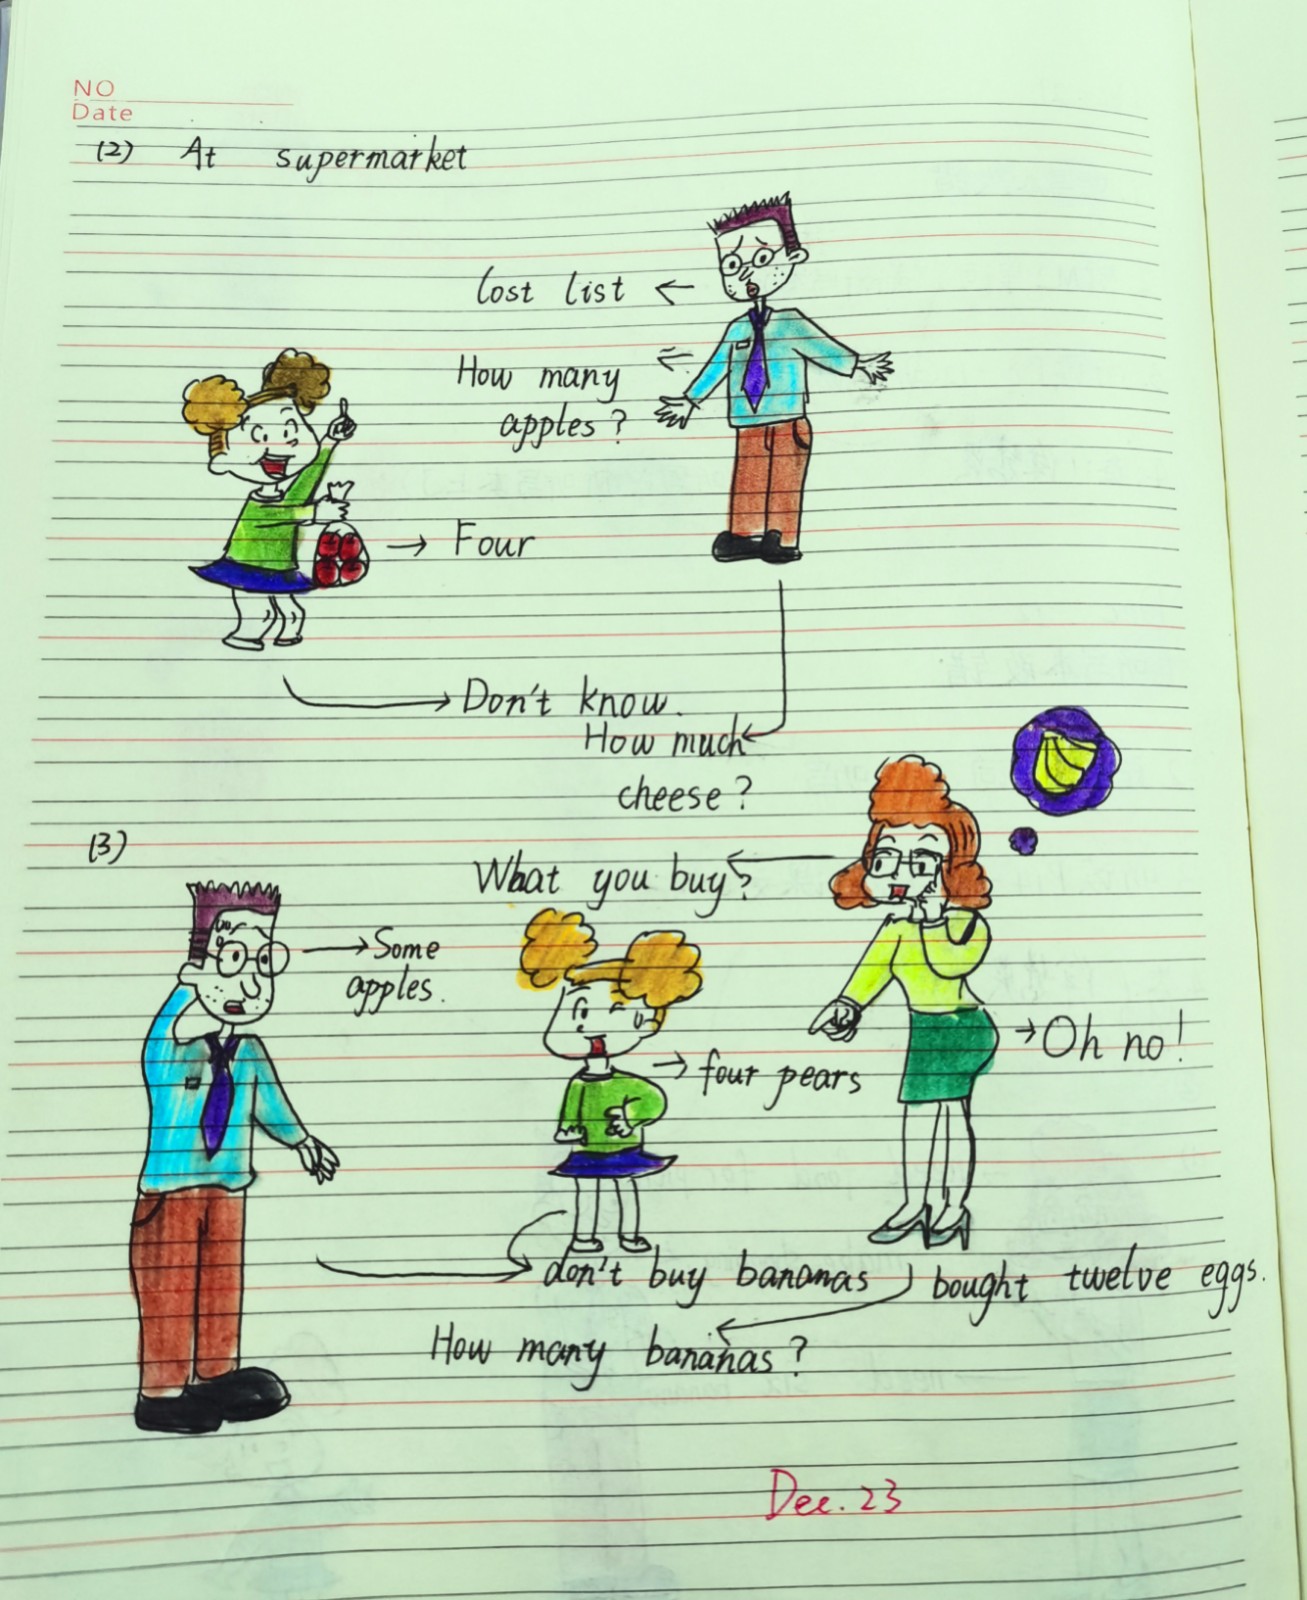 NO
Date
(2) At supermarket
lost list
How many
apples?
Four
Don't know.
How much
cheese?
(3)
What you buy?
Some
apples.
four pears
Oh no!
don't buy bananas
bought twelve eggs.
How many bananas?
Dec. 23